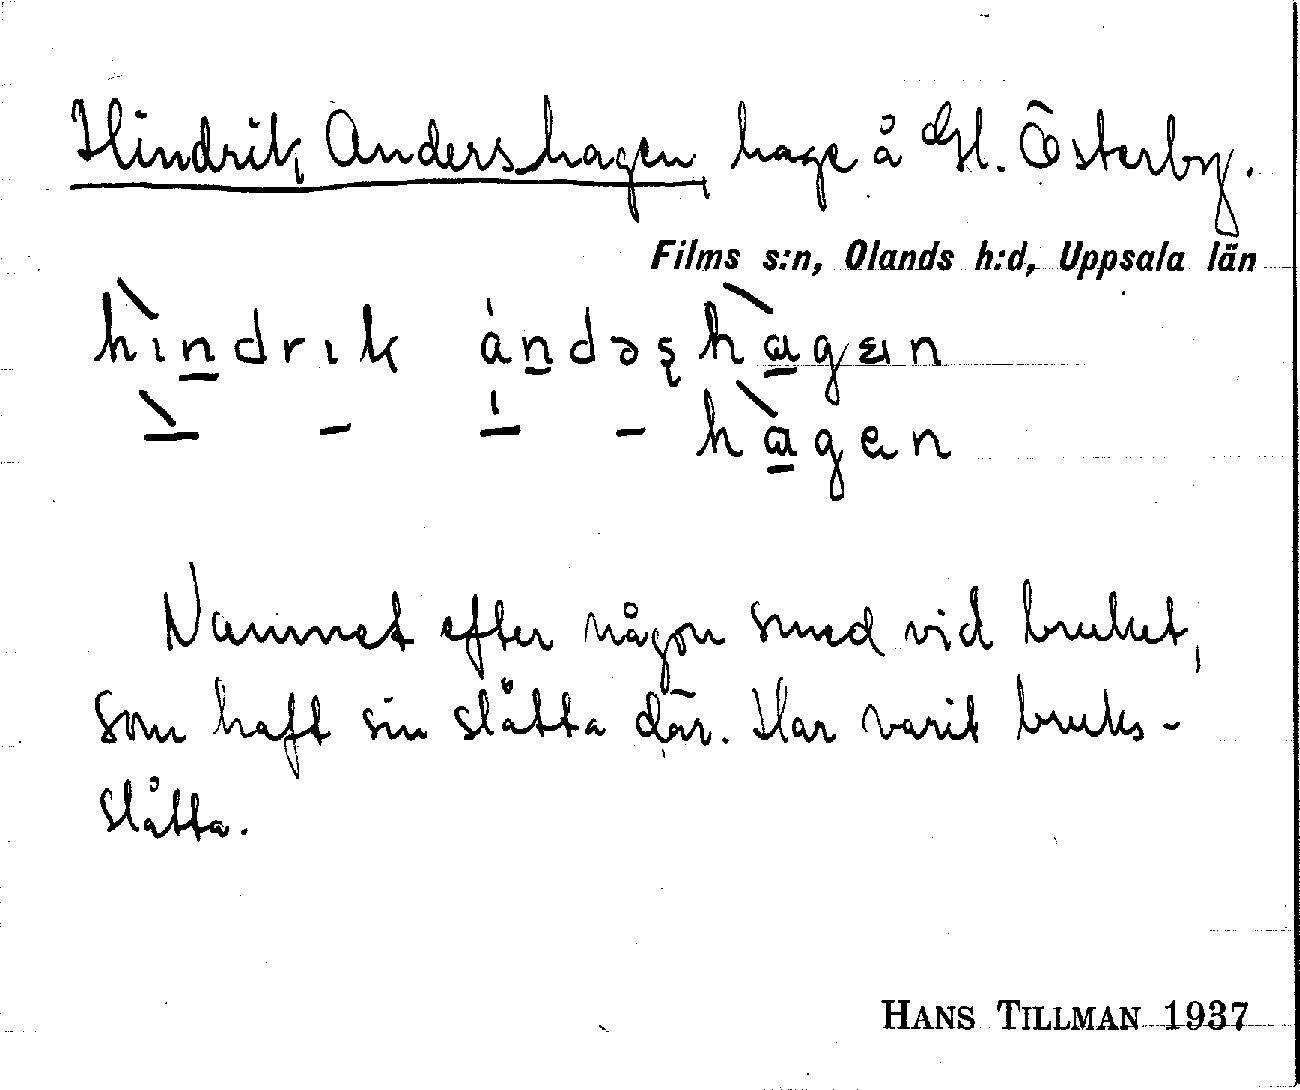 Hindrik Andershagen, hage å Gl. Österby.
Films s:n, Olands h:d, Uppsala län
hìndrık ándəşhàgæn
– – – – hàgen
Namnet efter någon smed vid bruket,
som haft sin slåtta där. Har varit bruks-
slåtta.
HANS TILLMAN 1937